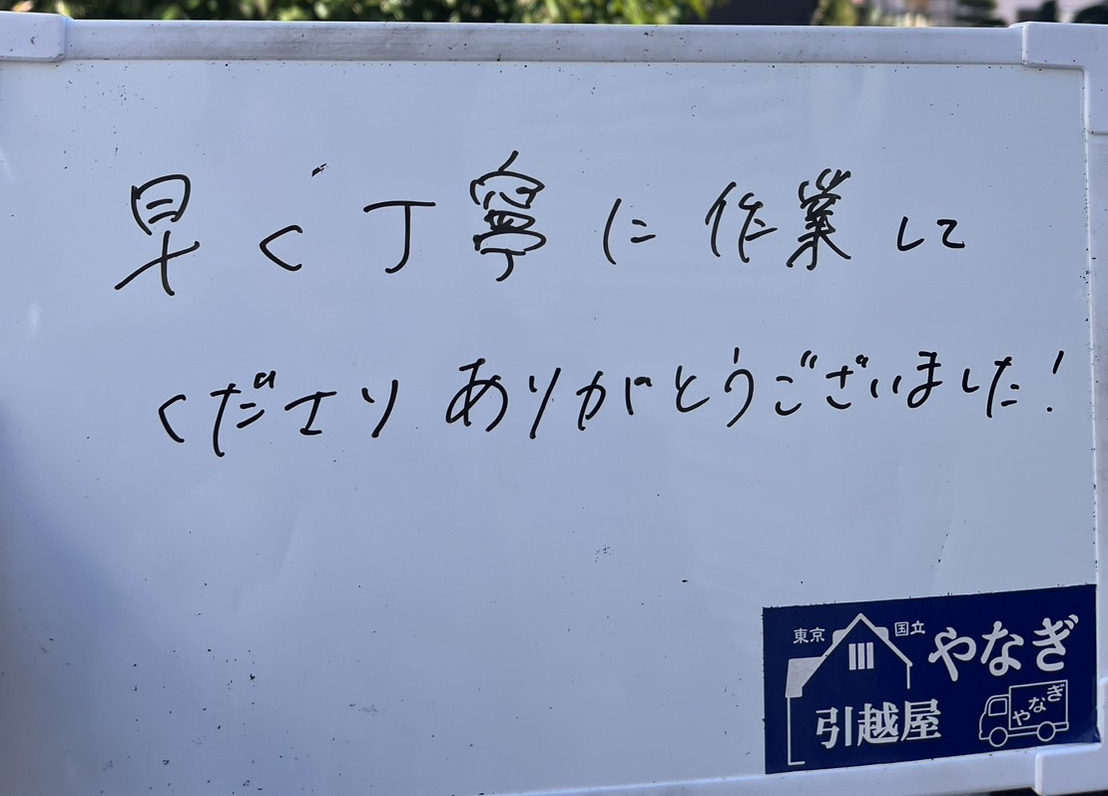 早く丁寧に作業して
くださり ありがとうございました!
東京 国立 やなぎ
引越屋
やなぎ